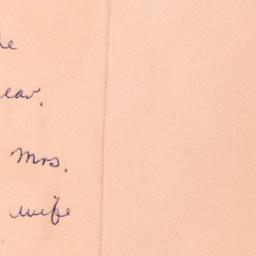 he
ear.
Mrs.
wife